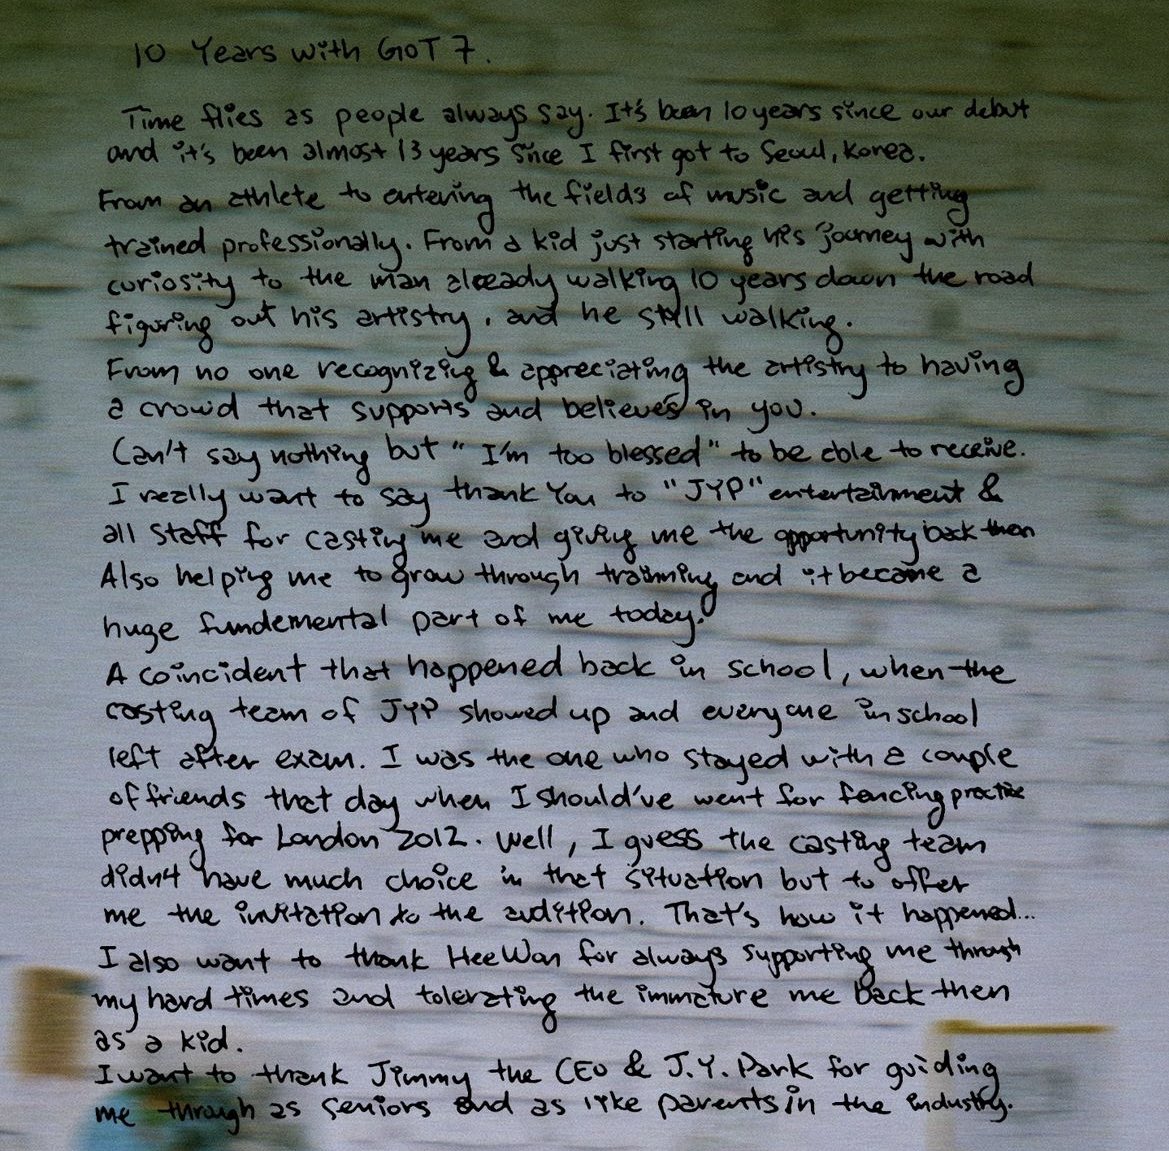 10 Years with GOT7.
Time flies as people always say. It's been 10 years since our debut
and it's been almost 13 years since I first got to Seoul, Korea.
From an athlete to entering the fields of music and getting
trained professionally. From a kid just starting his journey with
curiosity to the man already walking 10 years down the road
figuring out his artistry, and he still walking.
From no one recognizing & appreciating the artistry to having
a crowd that supports and believes in you.
Can't say nothing but "I'm too blessed" to be able to receive.
I really want to say thank You to "JYP" entertainment &
all staff for casting me and giving me the opportunity back then
Also helping me to grow through trainning and it became a
huge fundemental part of me today.
A coincident that happened back in school, when the
casting team of JYP showed up and everyone in school
left after exam. I was the one who stayed with a couple
of friends that day when I should've went for fencing practice
prepping for London 2012. Well, I guess the casting team
didn't have much choice in that situation but to offer
me the invitation to the audition. That's how it happened...
I also want to thank HeeWon for always supporting me through
my hard times and tolerating the immature me back then
as a kid.
I want to thank Jimmy the CEO & J.Y. Park for guiding
me through as seniors and as like parents in the industry.